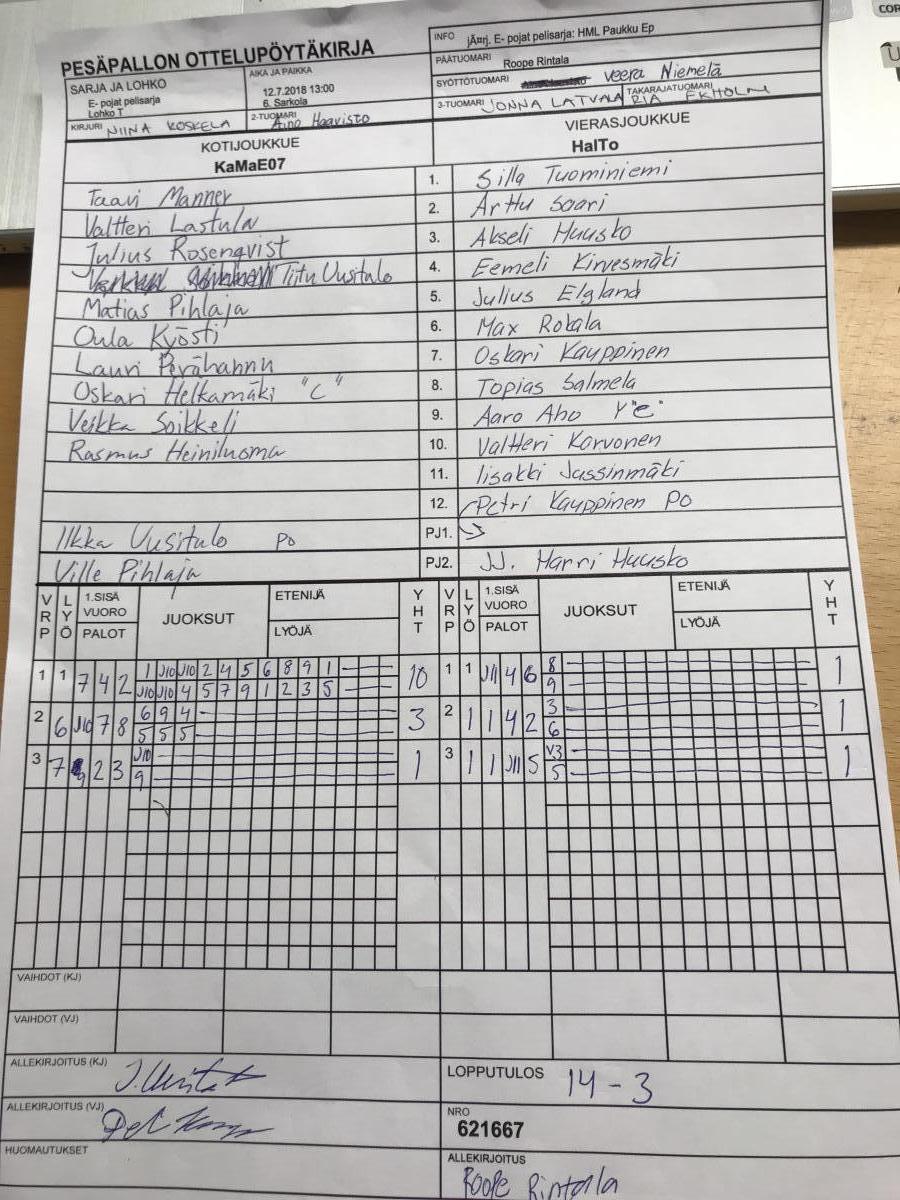 COR
U
PESÄPALLON OTTELUPÖYTÄKIRJA
INFO jÄ¤rj. E- pojat pelisarja: HML Paukku Ep
SARJA JA LOHKO
E- pojat pelisarja
Lohko T
AIKA JA PAIKKA
12.7.2018 13:00
6. Sarkola
PÄÄTUOMARI Roope Rintala
SYÖTTÖTUOMARI Veera Niemelä
KIRJURI NIINA KOSKELA
2-TUOMARI Aino Haavisto
3-TUOMARI JONNA LATVALA
TAKARAJATUOMARI RIA EKHOLM
KOTIJOUKKUE
KaMaE07
VIERASJOUKKUE
HalTo
Taavi Manner 1. Silla Tuominiemi
Valtteri Lastula 2. Arttu Saari
Julius Rosenqvist 3. Akseli Huusko
Tiitu Uusitulo 4. Eemeli Kirvesmäki
Matias Pihlaja 5. Julius Elgland
Oula Kyösti 6. Max Rokala
Lauri Perähannu 7. Oskari Kauppinen
Oskari Helkamäki "C" 8. Topias Salmela
Veikka Soikkeli 9. Aaro Aho "C"
Rasmus Heiniluoma 10. Valtteri Korvonen
11. Iisakki Jussinmäki
12. Petri Kauppinen PO
Ilkka Uusitulo PO PJ1.
Ville Pihlaja PJ2. JJ. Harri Huusko
VRP LYÖ 1.SISÄ VUORO PALOT JUOKSUT ETENIJÄ LYÖJÄ YHT VRP LYÖ 1.SISÄ VUORO PALOT JUOKSUT ETENIJÄ LYÖJÄ YHT
1 1 7 4 2 1 J10 J10 2 4 5 6 8 9 1 10 1 1 J11 4 6 8 1
J10 J10 4 5 7 9 1 2 3 5 9
2 6 J10 7 8 6 9 4 3 2 1 1 4 2 3 1
5 5 5 6
3 7 9 2 3 J10 1 3 1 1 J11 5 V3 1
9 5
VAIHDOT (KJ)
VAIHDOT (VJ)
ALLEKIRJOITUS (KJ)
LOPPUTULOS 14 - 3
ALLEKIRJOITUS (VJ)
NRO
621667
HUOMAUTUKSET
ALLEKIRJOITUS
Roope Rintala